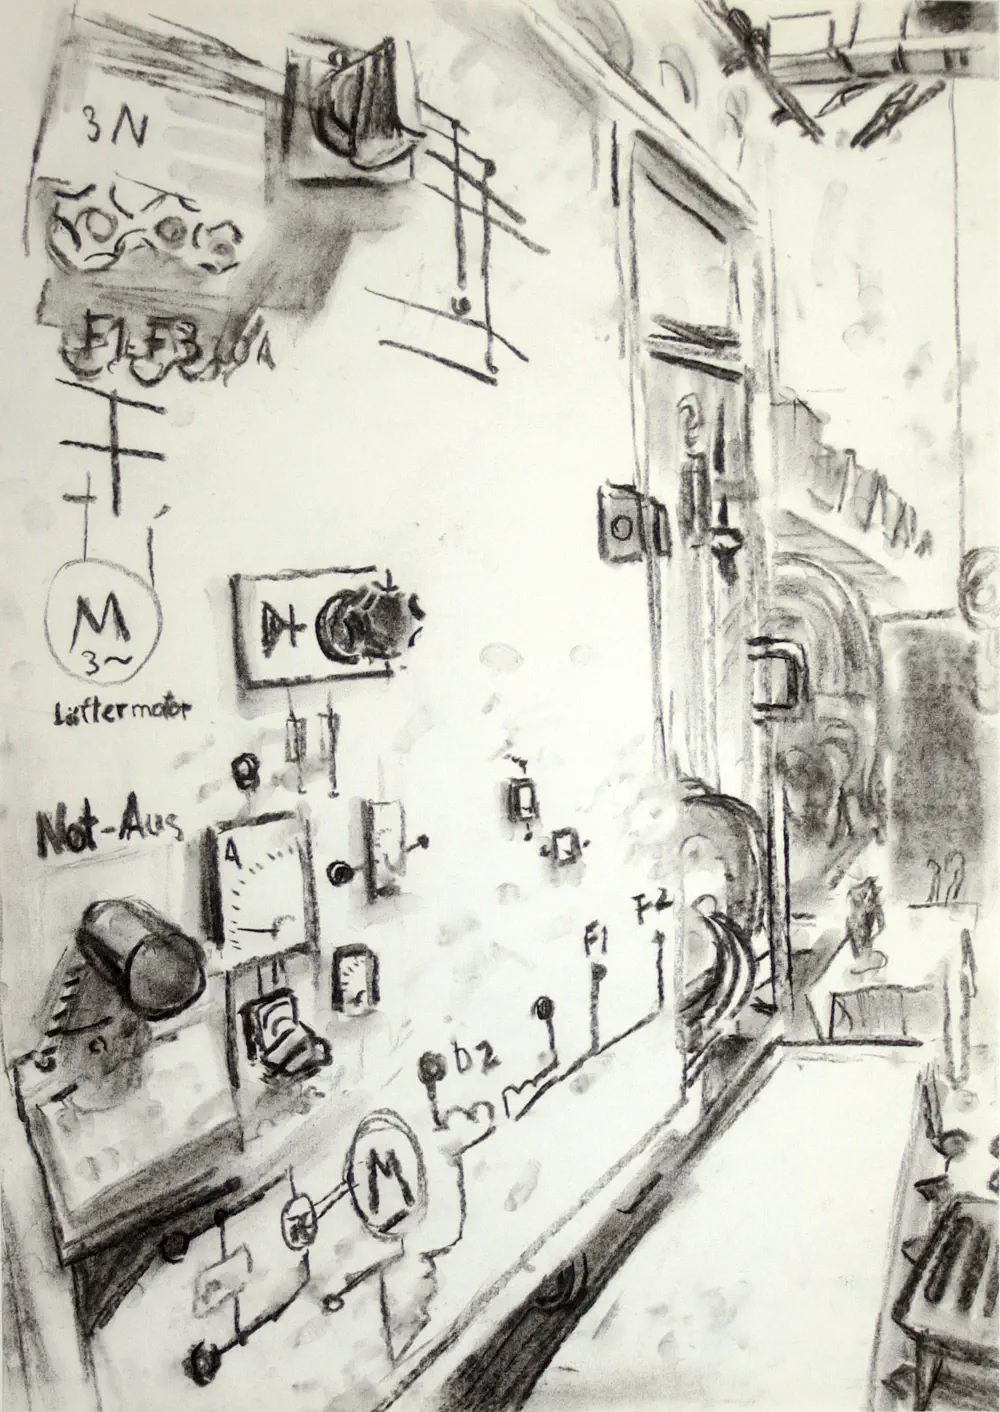 3 N
F1-F3
M
3~
Lüftermotor
Not-Aus
A
F2
F1
b2
M